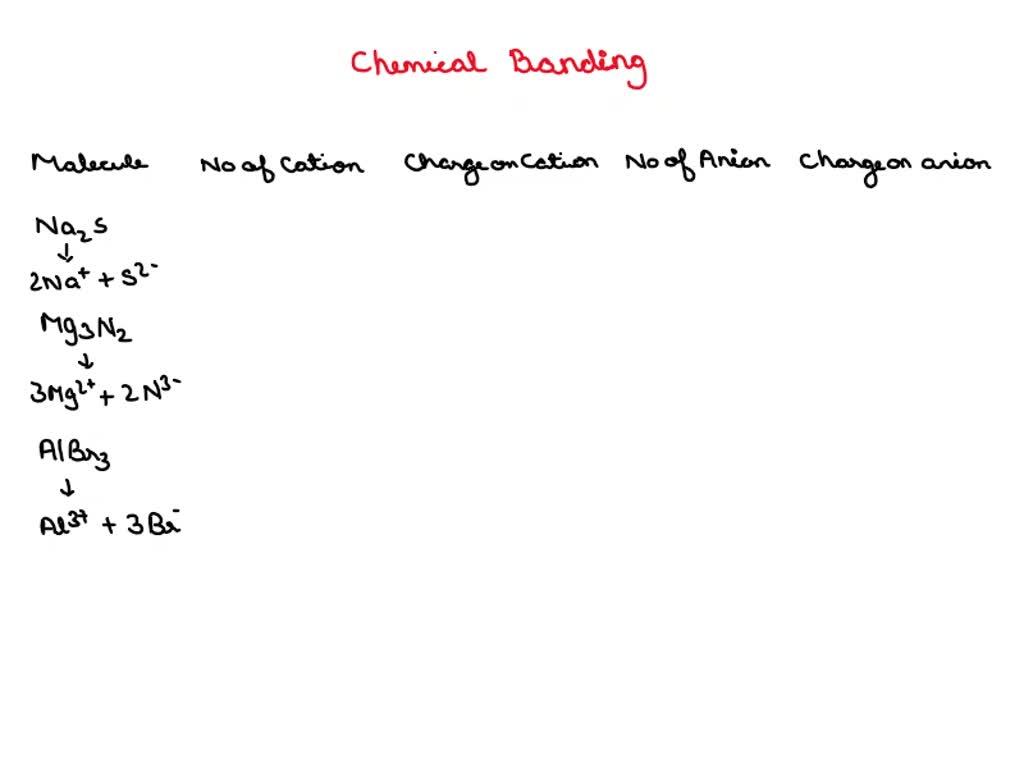 Chemical Bonding
Molecule No of Cation Charge on Cation No of Anion Charge on anion
Na₂S
↓
2Na⁺ + S²⁻
Mg₃N₂
↓
3Mg²⁺ + 2N³⁻
AlBr₃
↓
Al³⁺ + 3Br⁻